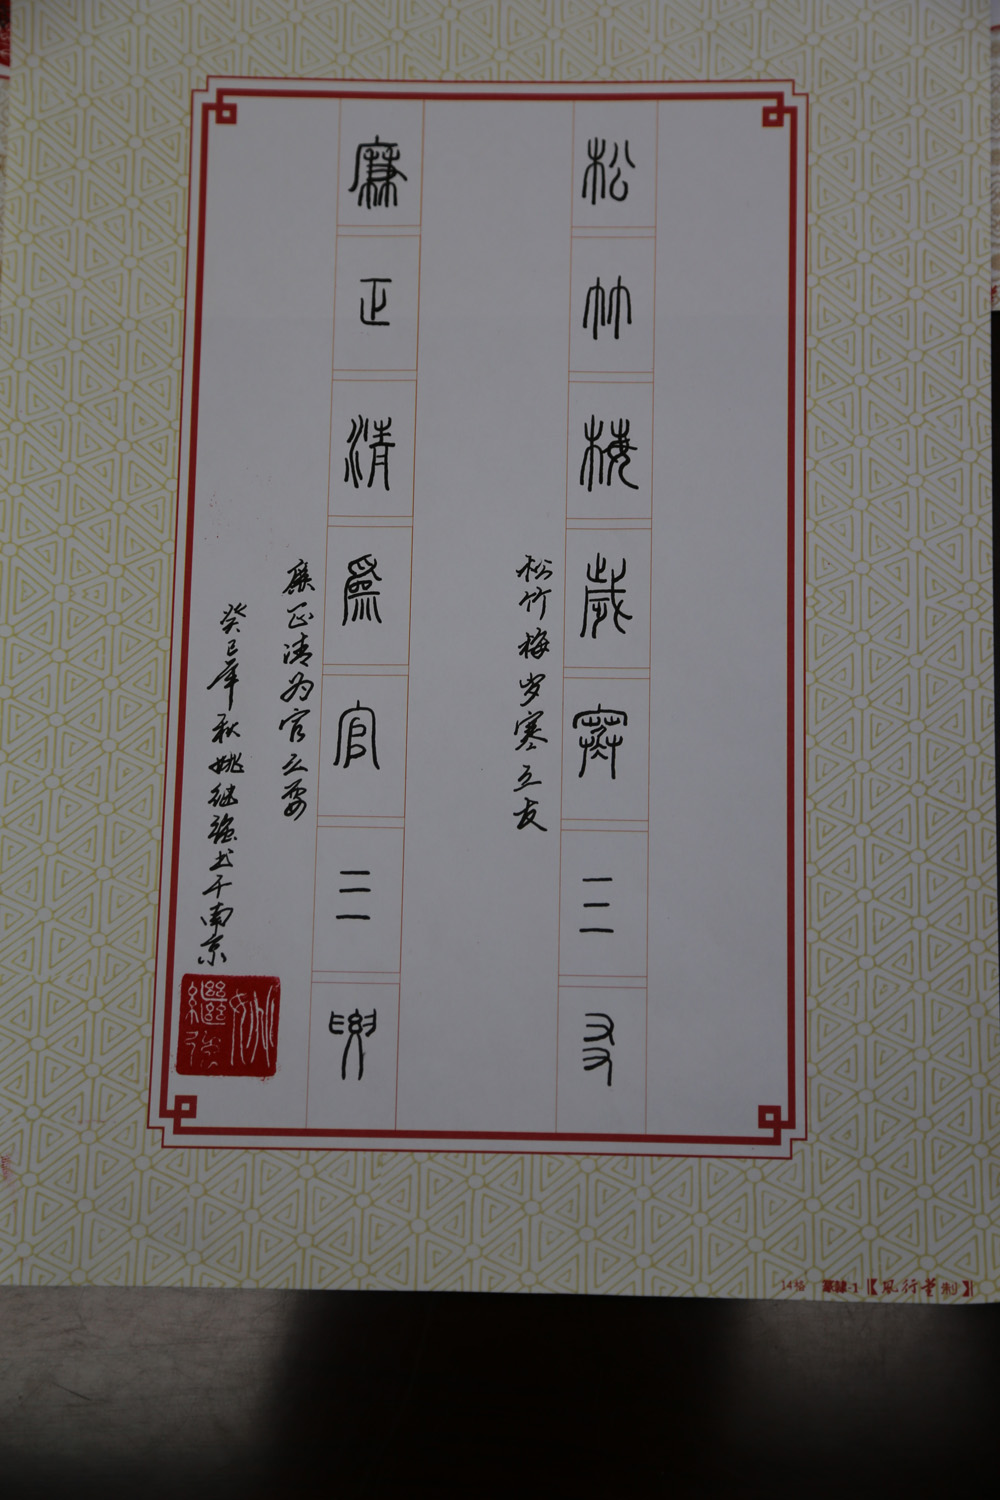 松竹梅歲寒三友
松竹梅岁寒三友
廉正清爲官三要
廉正清为官三要
癸巳年秋姚继强书于南京
姚繼强
14格